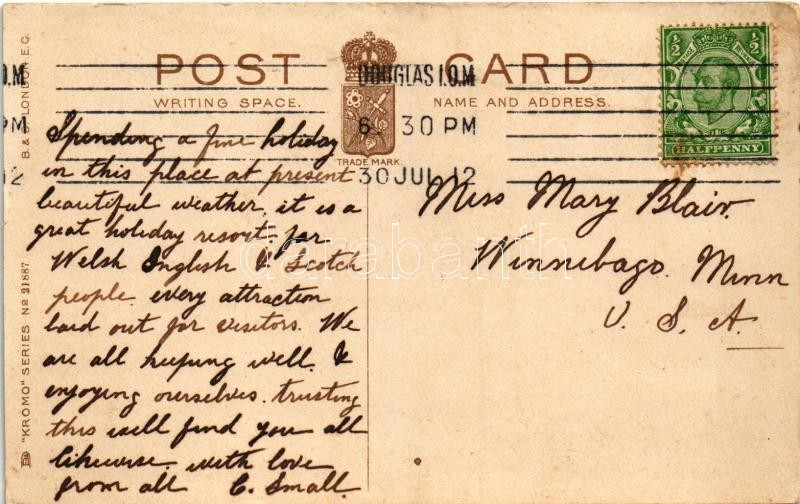 POST CARD
WRITING SPACE.
NAME AND ADDRESS.
TRADE MARK.
DOUGLAS I.O.M.
6. 30 PM
30 JUL 12
O.M.
PM
12
½ ½
HALFPENNY
B. & D. LONDON E.C.
"KROMO" SERIES No 21887
Spending a fine holiday
in this place at present
beautiful weather, it is a
great holiday resort. for
Welsh English & Scotch
people. every attraction
laid out for visitors. We
are all keeping well. &
enjoying ourselves. trusting
this will find you all
likewise. with love
from all E. Small.
Miss Mary Blair.
Winnebago. Minn
U. S. A.
darabanth